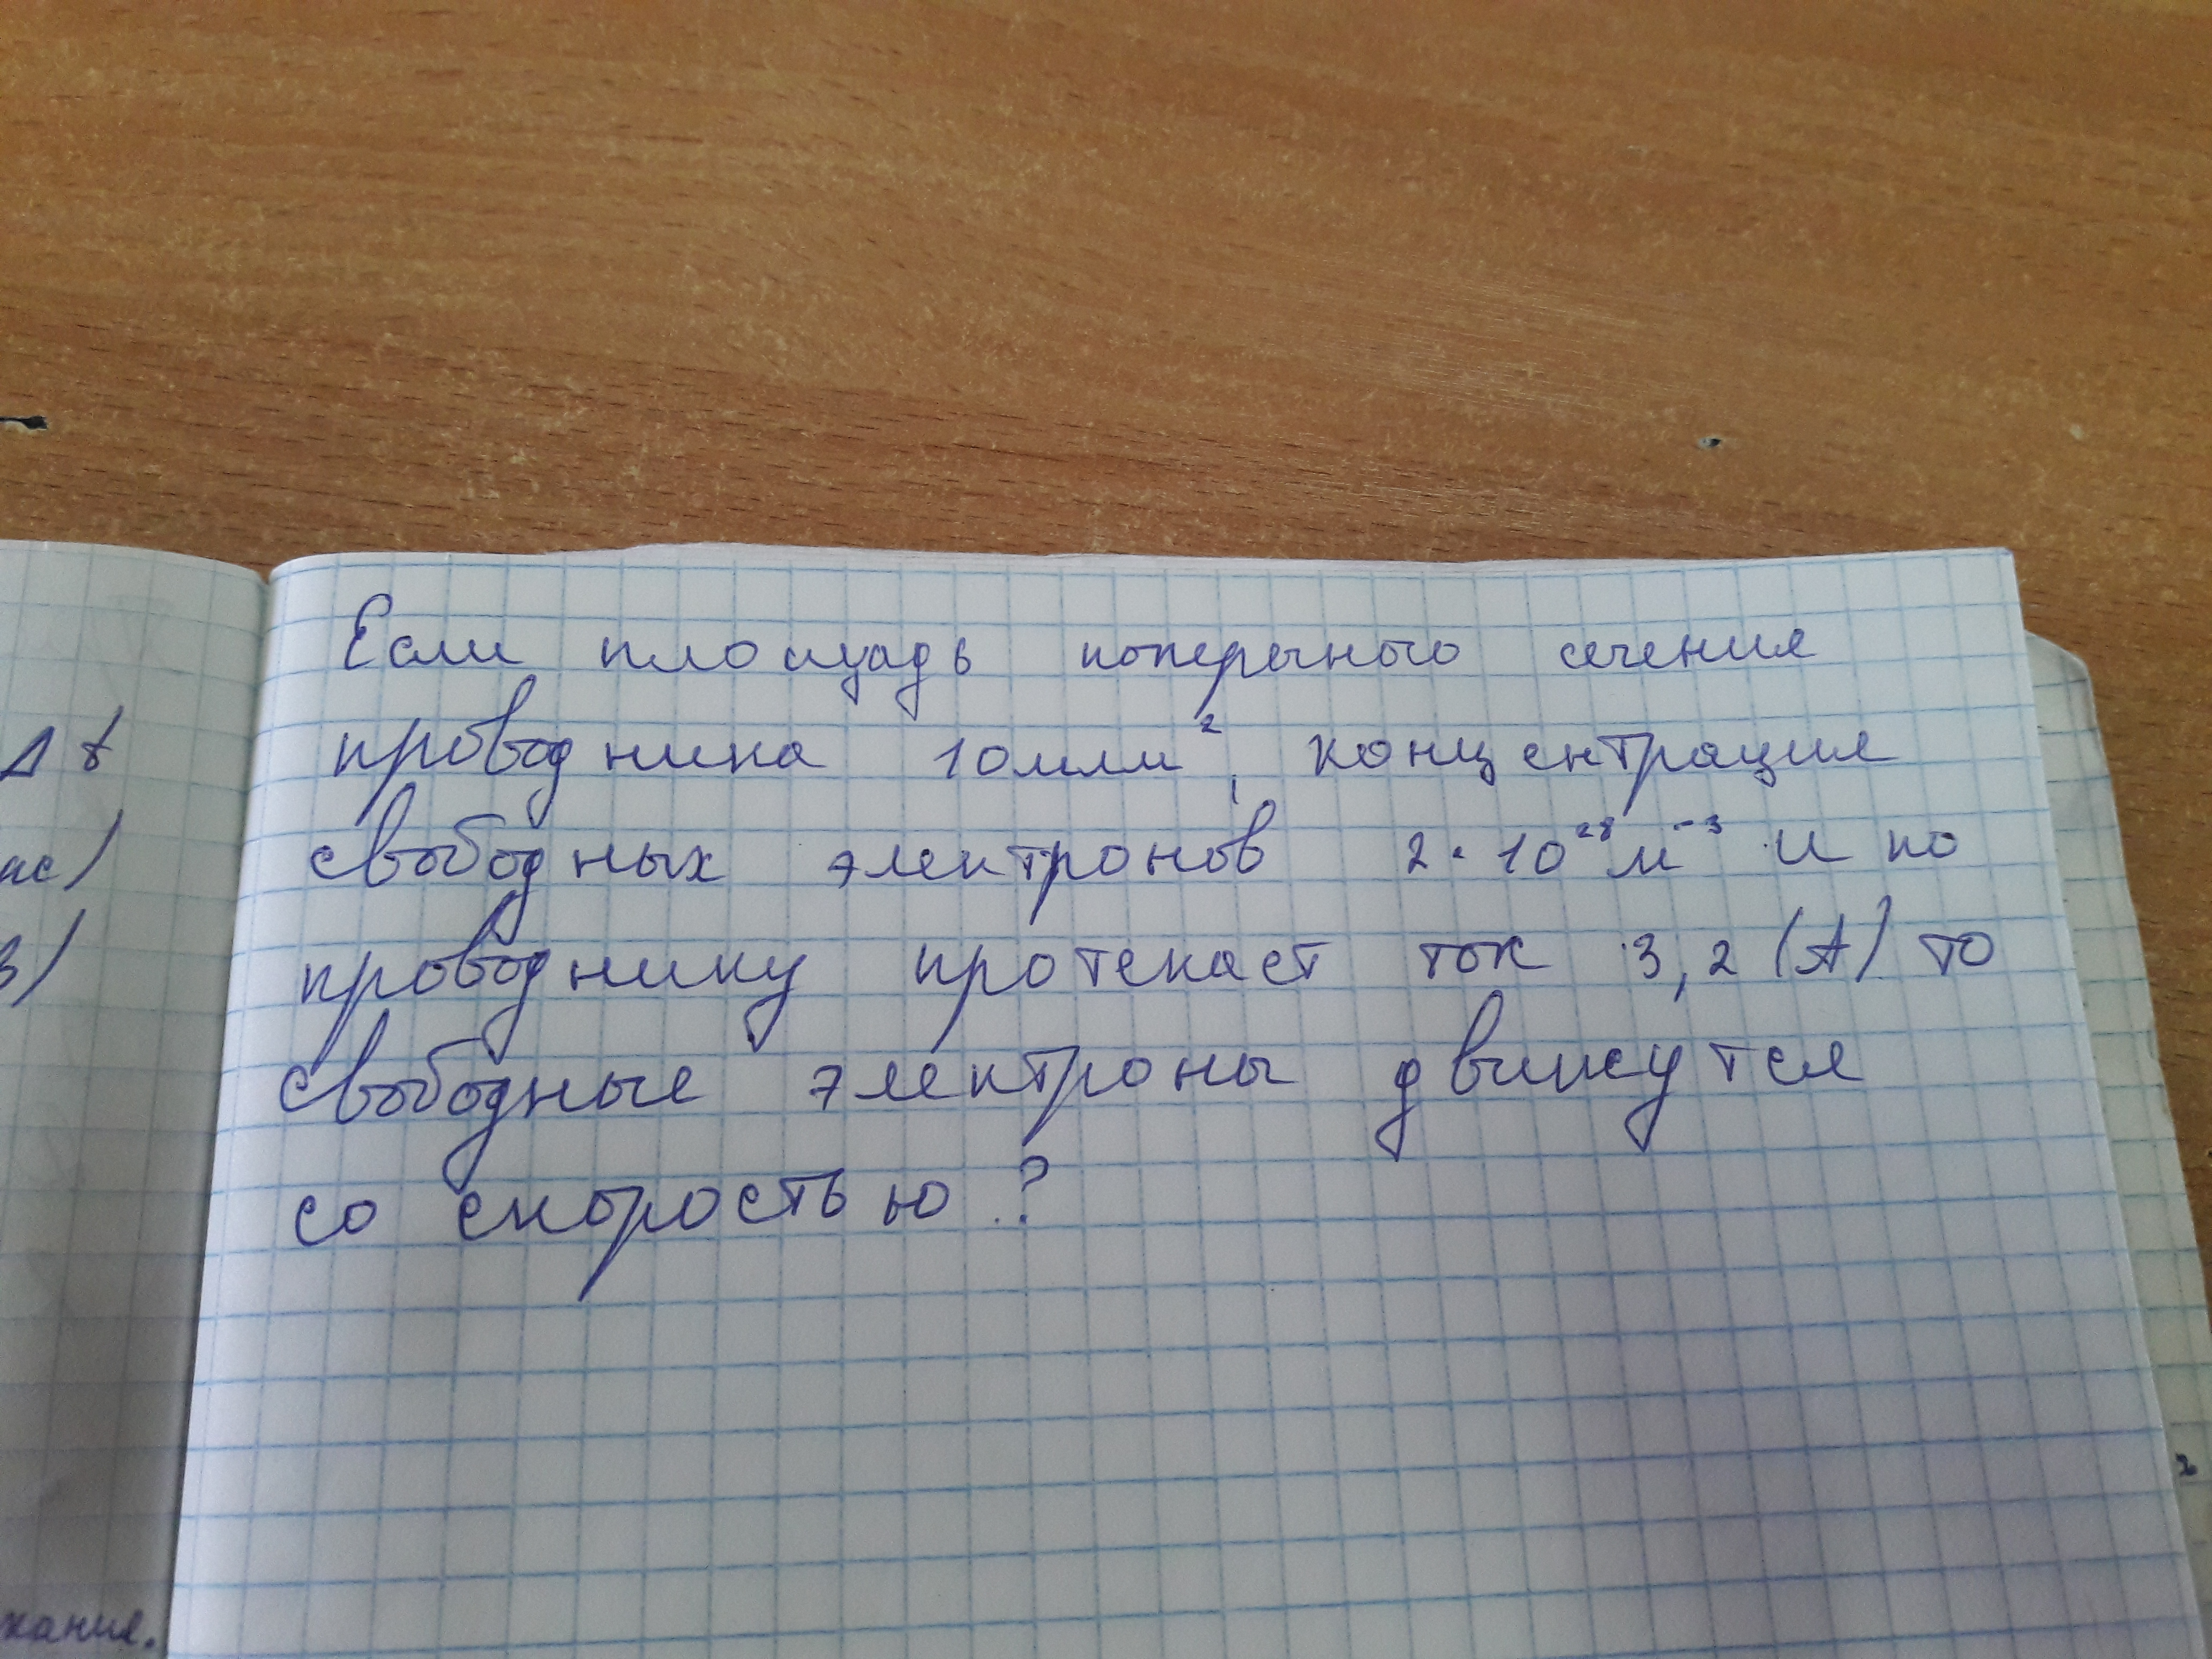 Δt
ас)
В)
жания.
Если площадь поперечного сечения
проводника 10мм², концентрация
свободных электронов 2·10²⁸м⁻³ и по
проводнику протекает ток 3,2 (А) то
свободные электроны движутся
со скоростью ?
2